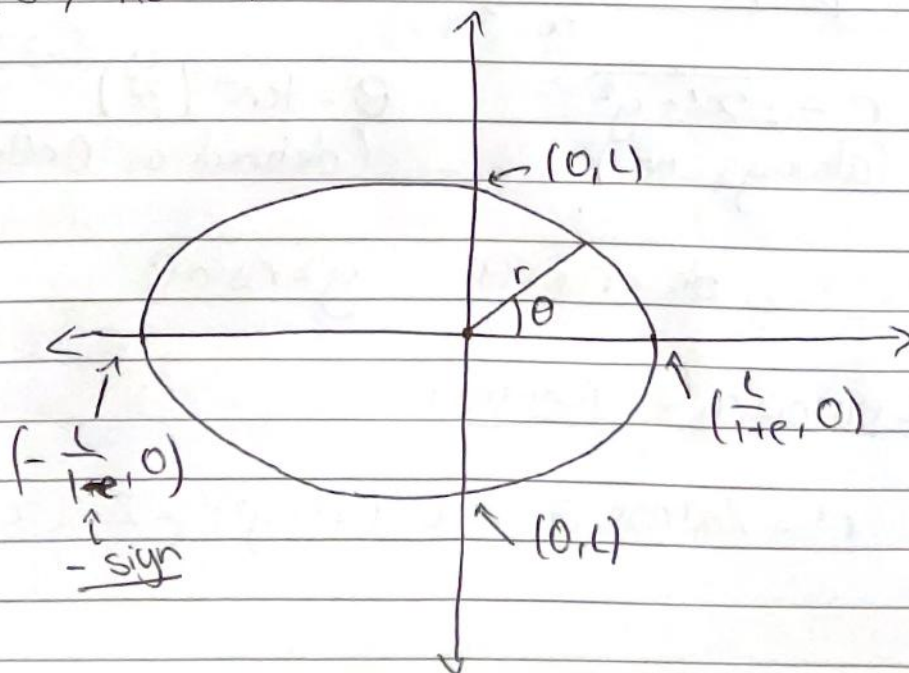 (0, L)
r
θ
(L/1+e, 0)
(-L/1-e, 0)
- sign
(0, L)